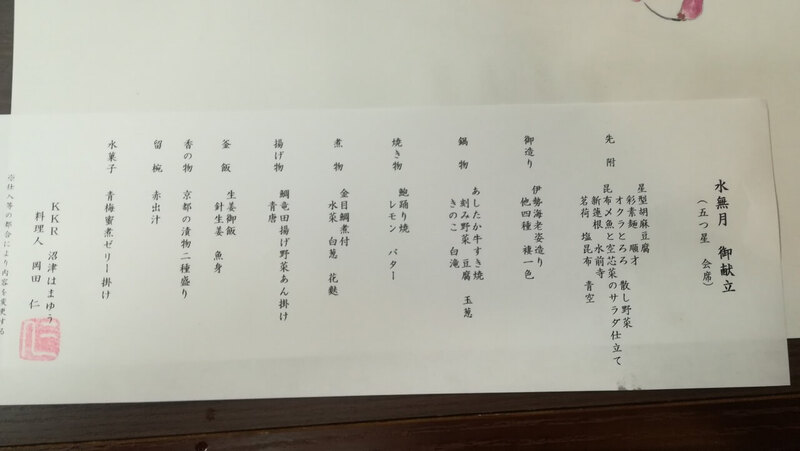 水無月 御献立
(五つ星 会席)
先附
星型胡麻豆腐
彩素麺 順才 散し野菜
オクラとろろ
昆布〆魚と空芯菜のサラダ仕立て
新蓮根 水前寺
茗荷 塩昆布 青空
御造り
伊勢海老姿造り
他四種 褄一色
鍋物
あしたか牛すき焼
刻み野菜 豆腐 玉葱
きのこ 白滝
焼き物
鮑踊り焼
レモン バター
煮物
金目鯛煮付
水菜 白葱 花麩
揚げ物
鯛竜田揚げ野菜あん掛け
青唐
釜飯
生姜御飯
針生姜 魚身
留椀 赤出汁
香の物 京都の漬物二種盛り
水菓子 青梅蜜煮ゼリー掛け
KKR 沼津はまゆう
料理人 岡田 仁
※仕入等の都合により内容を変更する